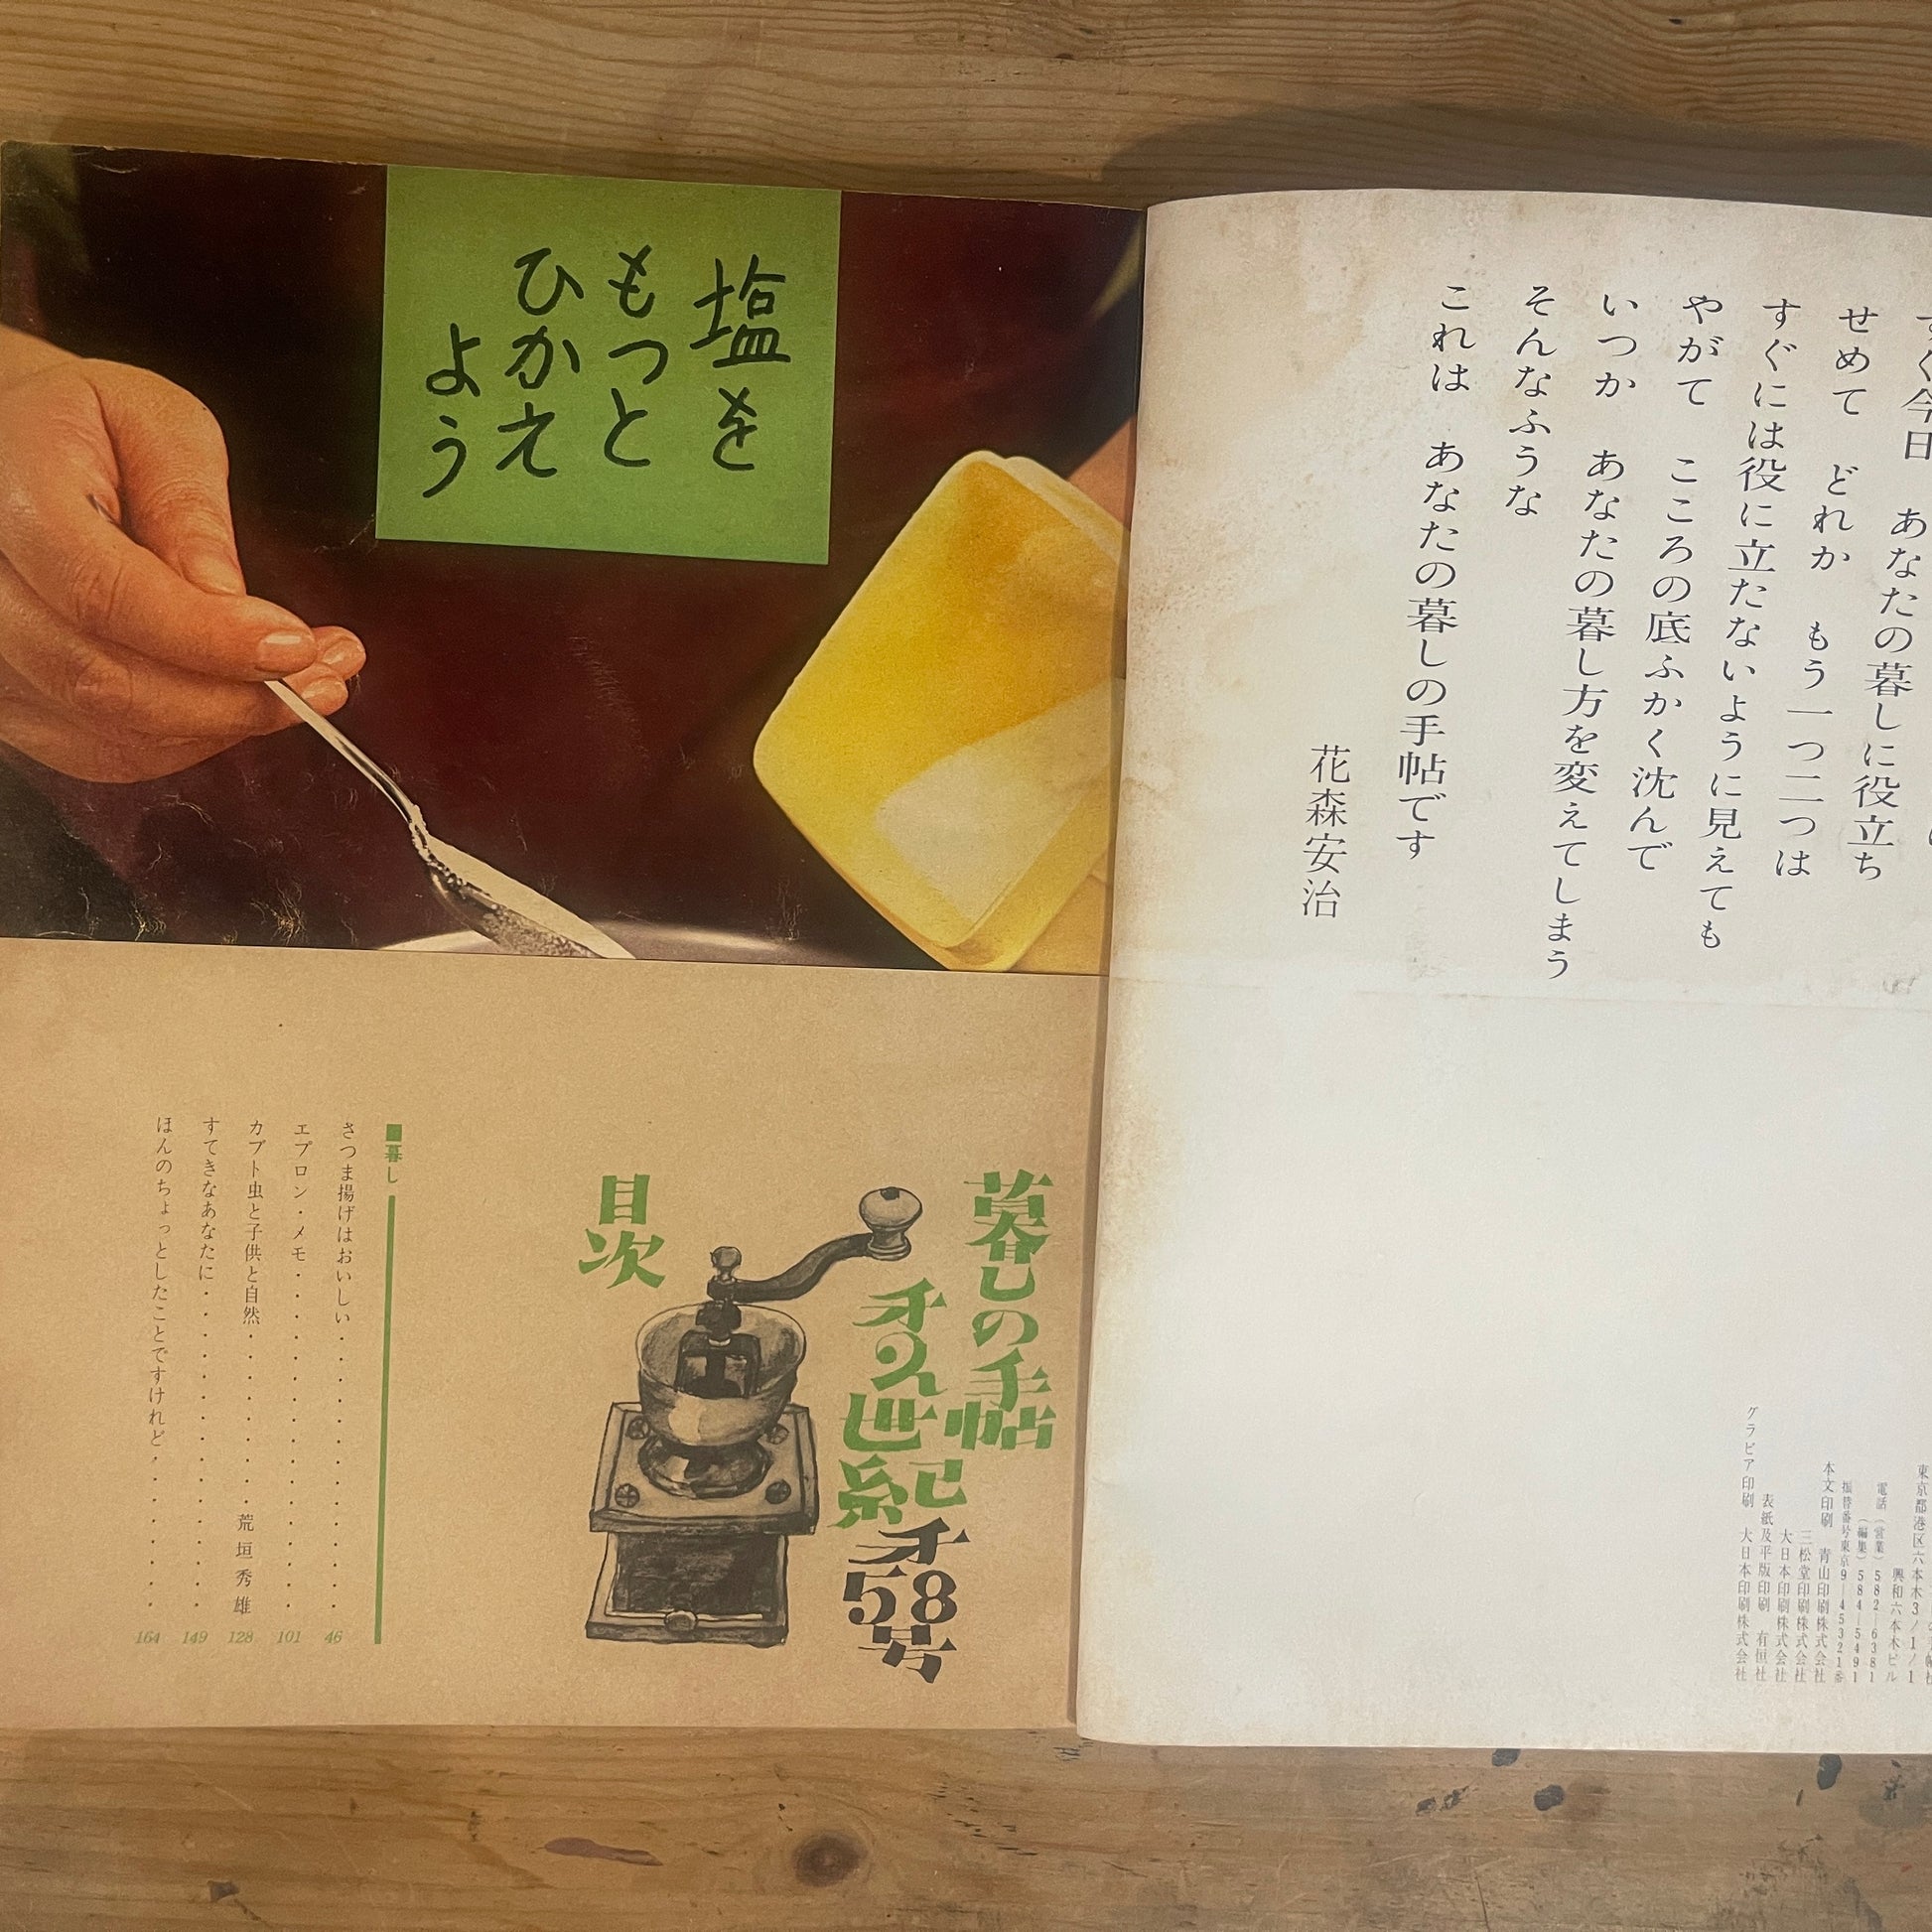 すぐ今日 あなたの暮しに役立ち
せめて どれか もう一つ二つは
すぐには役に立たないように見えても
やがて こころの底ふかく沈んで
いつか あなたの暮し方を変えてしまう
そんなふうな
これは あなたの暮しの手帖です
花森安治
東京都港区六本木3/1/1
興和六本木ビル
電話(営業)582-6381
(編集)584-5491
振替番号東京9-45321番
本文印刷 青山印刷株式会社
三松堂印刷株式会社
大日本印刷株式会社
表紙及平版印刷 有恒社
グラビア印刷 大日本印刷株式会社
塩を
もっと
ひかえ
よう
暮しの手帖
オ2世紀
オ58号
目次
■暮し
さつま揚げはおいしい・・・・・・・・・・・・・・46
エプロン・メモ・・・・・・・・・・・・・・・・・101
カブト虫と子供と自然・・・・・・・・・荒垣秀雄 128
すてきなあなたに・・・・・・・・・・・・・・・・149
ほんのちょっとしたことですけれど・・・・・・・・164